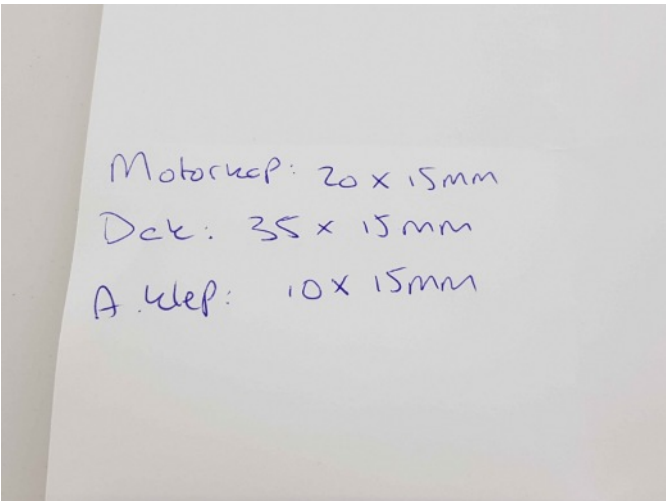 Motorkap: 20 x 15mm
Dak: 35 x 15mm
A.klep: 10x 15mm